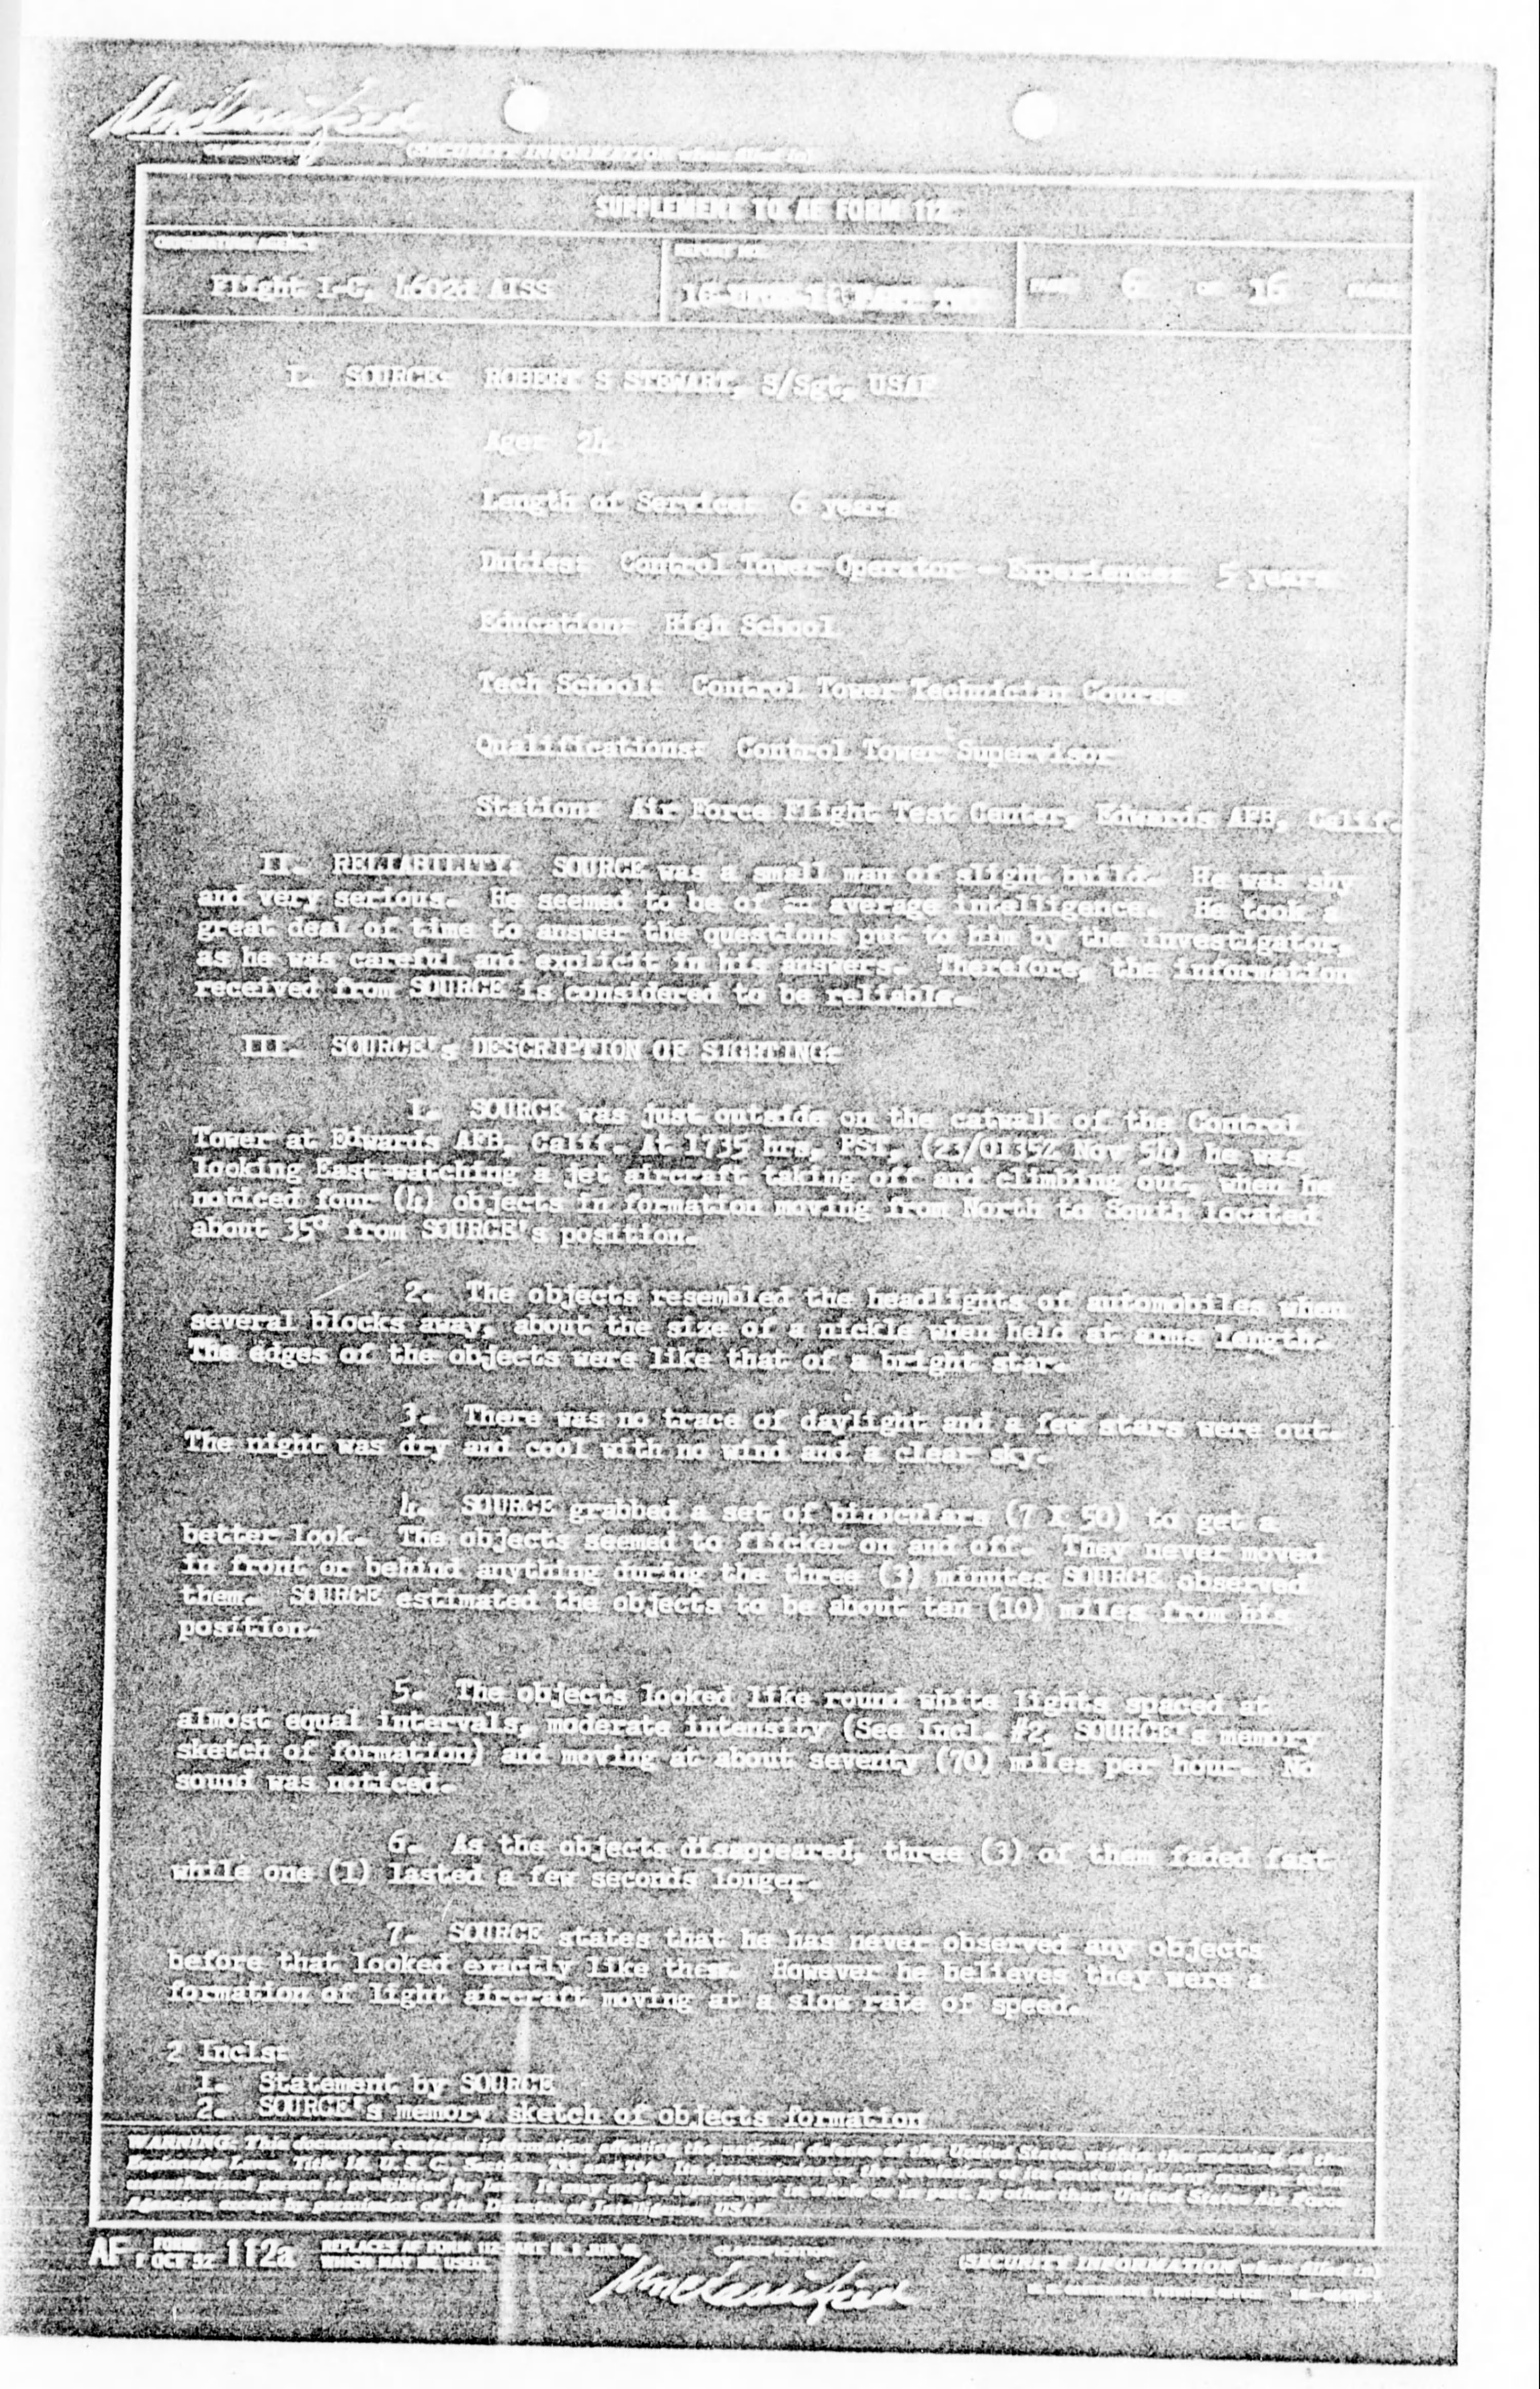 Unclassified
SUPPLEMENT TO AF FORM 112
Flight 1-C, 4602d AISS
6 OF 16
I. SOURCE: ROBERT S STEWART, S/Sgt, USAF
Age: 24
Length of Service: 6 years
Duties: Control Tower Operator - Experience: 5 years
Education: High School
Tech School: Control Tower Technician Course
Qualifications: Control Tower Supervisor
Station: Air Force Flight Test Center, Edwards AFB, Calif.
II. RELIABILITY: SOURCE was a small man of slight build. He was shy
and very serious. He seemed to be of an average intelligence. He took a
great deal of time to answer the questions put to him by the investigator,
as he was careful and explicit in his answers. Therefore, the information
received from SOURCE is considered to be reliable.
III. SOURCE's DESCRIPTION OF SIGHTING:
1. SOURCE was just outside on the catwalk of the Control
Tower at Edwards AFB, Calif. At 1735 hrs, PST, (23/0135Z Nov 54) he was
looking East watching a jet aircraft taking off and climbing out, when he
noticed four (4) objects in formation moving from North to South located
about 35° from SOURCE's position.
2. The objects resembled the headlights of automobiles when
several blocks away, about the size of a nickle when held at arms length.
The edges of the objects were like that of a bright star.
3. There was no trace of daylight and a few stars were out.
The night was dry and cool with no wind and a clear sky.
4. SOURCE grabbed a set of binoculars (7 X 50) to get a
better look. The objects seemed to flicker on and off. They never moved
in front or behind anything during the three (3) minutes SOURCE observed
them. SOURCE estimated the objects to be about ten (10) miles from his
position.
5. The objects looked like round white lights spaced at
almost equal intervals, moderate intensity (See Incl. #2, SOURCE's memory
sketch of formation) and moving at about seventy (70) miles per hour. No
sound was noticed.
6. As the objects disappeared, three (3) of them faded fast
while one (1) lasted a few seconds longer.
7. SOURCE states that he has never observed any objects
before that looked exactly like them. However he believes they were a
formation of light aircraft moving at a slow rate of speed.
2 Incls:
1. Statement by SOURCE
2. SOURCE's memory sketch of objects formation
WARNING: This document contains information affecting the national defense of the United States within the meaning of the
AF FORM 1 OCT 52 112a
REPLACES AF FORM 112-PART II, 1 JUN 48,
WHICH MAY BE USED.
Unclassified
(SECURITY INFORMATION when filled in)